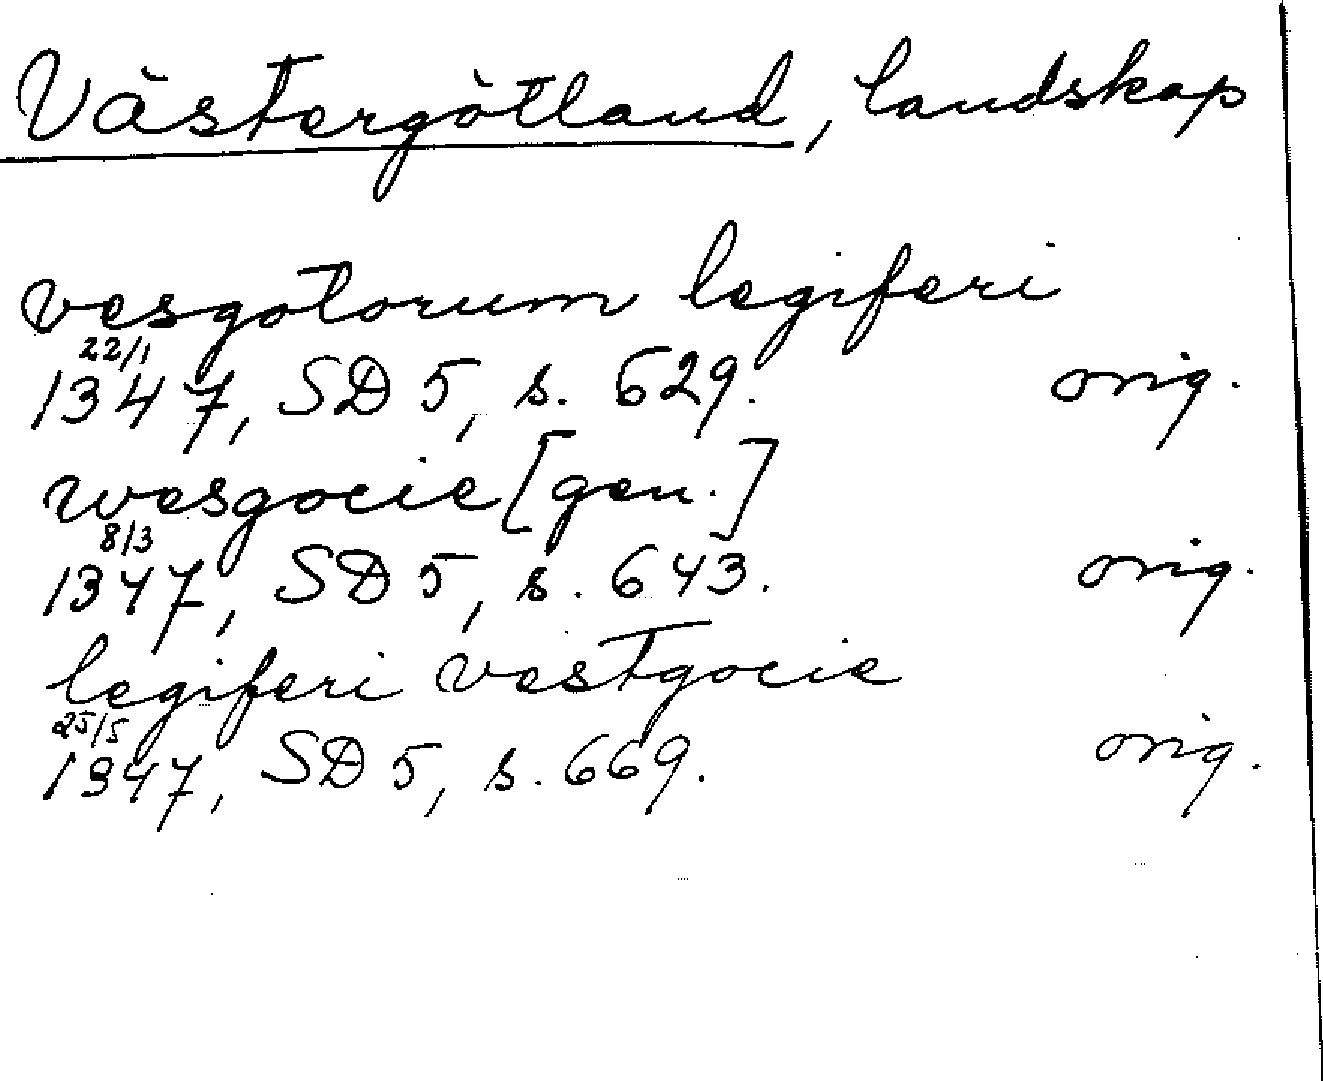 Västergötland, landskap
vesgotorum legiferi
22/1
1347, SD 5, s. 629. orig.
wesgocie [gen.]
8/3
1347, SD 5, s. 643. orig.
legiferi vestgocie
25/5
1347, SD 5, s. 669. orig.